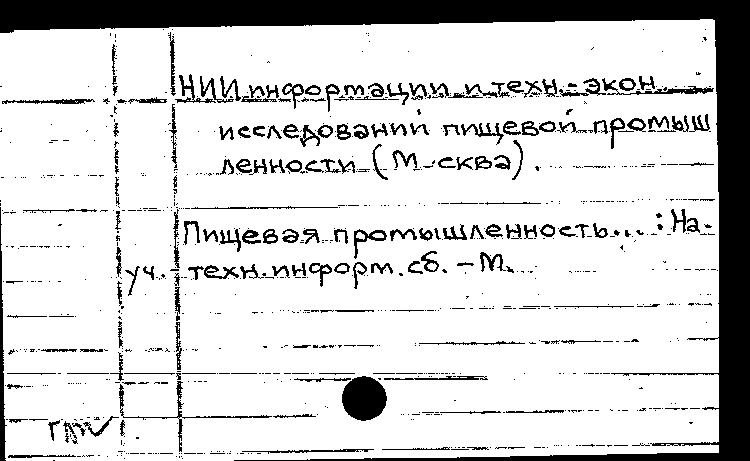 НИИ информации и техн.-экон.
исследований пищевой промыш
ленности (Москва).
Пищевая промышленность... : На-
уч.-техн.информ.сб. - М.